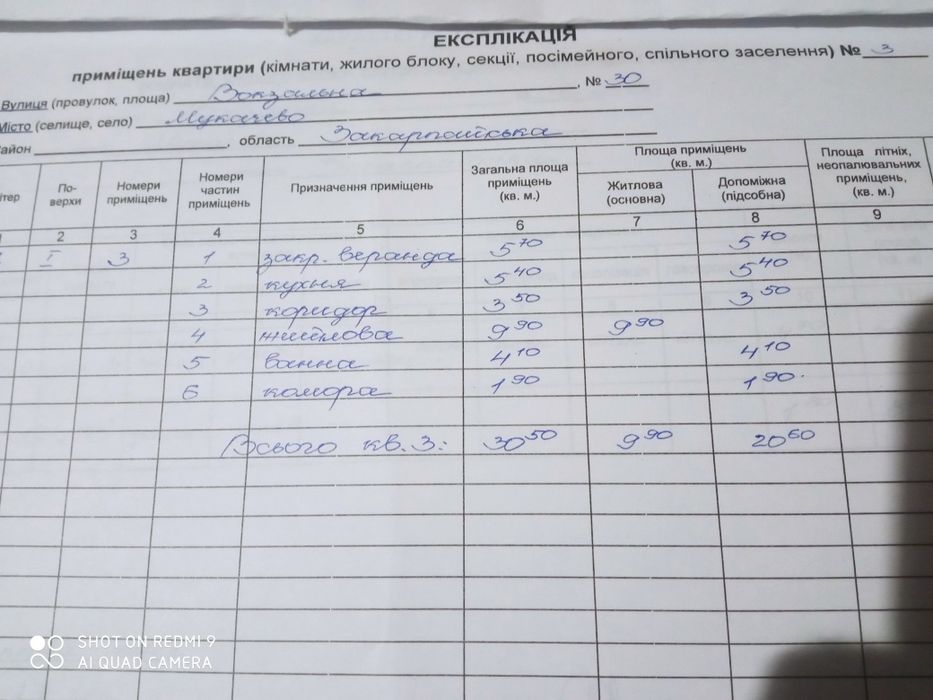 ЕКСПЛІКАЦІЯ
приміщень квартири (кімнати, жилого блоку, секції, посімейного, спільного заселення) № 3
Вулиця (провулок, площа) Вокзальна, № 30
Місто (селище, село) Мукачево
район , область Закарпатська
ітер По-верхи Номери приміщень Номери частин приміщень Призначення приміщень Загальна площа приміщень (кв. м.) Площа приміщень (кв. м.) Житлова (основна) Допоміжна (підсобна) Площа літніх, неопалювальних приміщень, (кв. м.)
2 3 4 5 6 7 8 9
I 3 1 закр. веранда 5 70 5 70
2 кухня 5 40 5 40
3 коридор 3 50 3 50
4 житлова 9 90 9 90
5 ванна 4 10 4 10
6 комора 1 90 1 90
Всього кв. 3: 30 50 9 90 20 60
SHOT ON REDMI 9
AI QUAD CAMERA